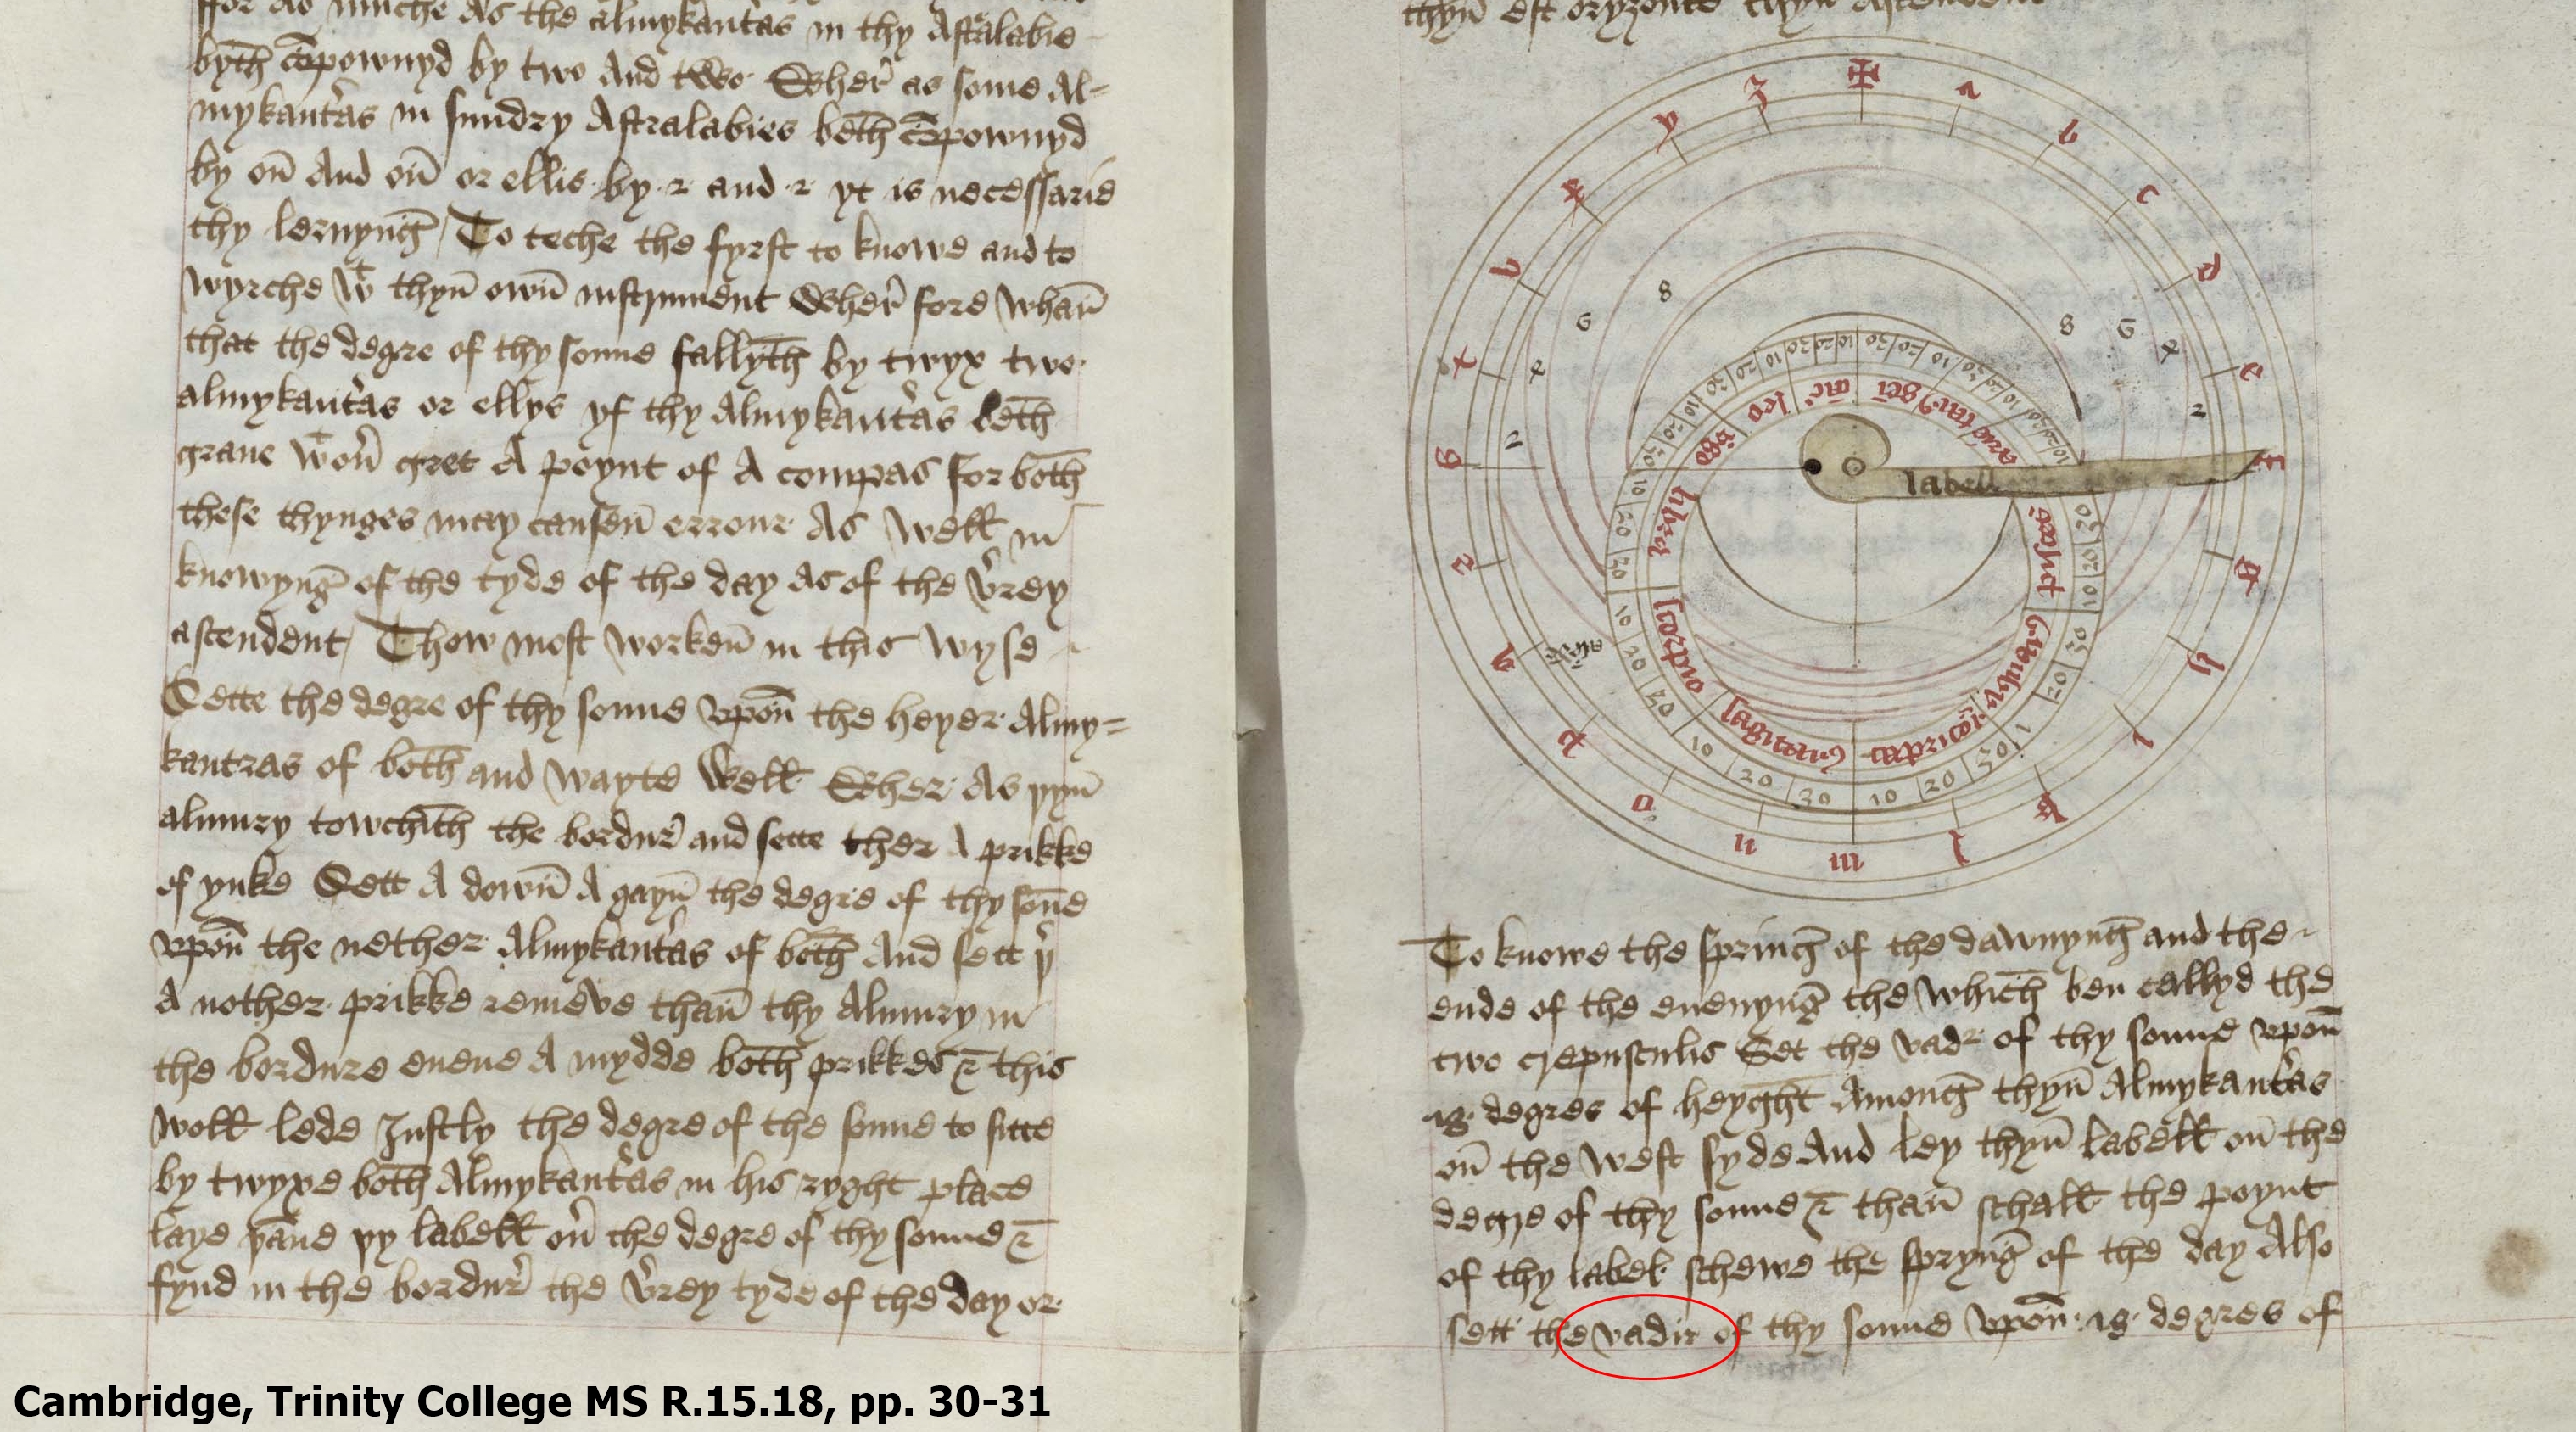 ffor as muche as the almykantras in thy Astralabie
byth cōpownyd by two And two Wher as some Al=
mykantras in sundry Astralabies beth cōpownyd
by on And on or ellis by 2 and 2 yt is necessarie
thy lernyng To teche the fyrst to knowe and to
wyrche wt thyn own instrument Wher fore whan
that the degre of thy sonne fallyth by twyx two
almykantras or ellys yf thy Almykantras beth
graue wt on gret A poynt of A compas For both
these thynges may causen errour As well in
knowyng of the tyde of the day As of the verey
ascendent Thow most worken in this wyse
Sette the degre of thy sonne vpon the heyer Almy=
kantras of both and wayte well Wher As yyn
almury towchith the bordur and sette ther A prikke
of ynke Sett A down A gayn the degre of thy sōne
vpon the nether Almykantras of both And sett yr
A nother prikke remeve than thy Almury in
the bordure euene A mydde both prikkes & this
woll lede Justly the degre of the sonne to sitte
by twyxe both Almykantras in his ryght place
laye yane yy labell on the degre of thy sonne &
fynd in the bordur the verey tyde of the day or
thyn est oryzonte thyn Ascendent
✠ a b c d e f g h i k l m n o p q r s t v x y z
8 6 4 2
8 6 4 2
10 20 30
aries taur gei cāc leo vgo libra scorpio sagittari9 pisces
labell
To knowe the spring of the dawnyng and the
ende of the euenyng the which ben callyd the
two crepusculis Set the vadr of thy sonne vpon
18 degres of heyght Among thyn Almykantras
on the west syde And ley thyn labell on the
degre of thy sonne & than schall the poynt
of thy label schewe the spryng of the day Also
sett the vadir of thy sonne vpon 18 degres of
Cambridge, Trinity College MS R.15.18, pp. 30-31